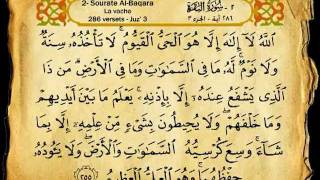 2- Sourate Al-Baqara
La vache
286 versets - Juz' 3
٢ - سُورَةُ البَقَرَةِ
٢٨٦ آية - الجزء ٣
اللَّهُ لَا إِلَٰهَ إِلَّا هُوَ الْحَيُّ الْقَيُّومُ ۚ لَا تَأْخُذُهُ سِنَةٌ
وَلَا نَوْمٌ ۚ لَّهُ مَا فِي السَّمَاوَاتِ وَمَا فِي الْأَرْضِ ۗ مَن ذَا
الَّذِي يَشْفَعُ عِندَهُ إِلَّا بِإِذْنِهِ ۚ يَعْلَمُ مَا بَيْنَ أَيْدِيهِمْ
وَمَا خَلْفَهُمْ ۖ وَلَا يُحِيطُونَ بِشَيْءٍ مِّنْ عِلْمِهِ إِلَّا بِمَا
شَاءَ ۚ وَسِعَ كُرْسِيُّهُ السَّمَاوَاتِ وَالْأَرْضَ ۖ وَلَا يَئُودُهُ
حِفْظُهُمَا ۚ وَهُوَ الْعَلِيُّ الْعَظِيمُ ٢٥٥